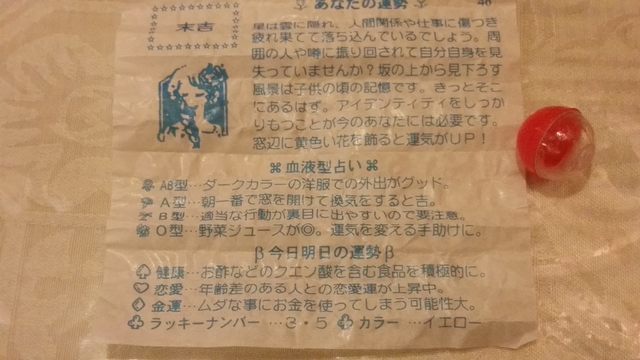 あなたの運勢 40
末吉
星は雲に隠れ、人間関係や仕事に傷つき
疲れ果てて落ち込んでいるでしょう。周
囲の人や噂に振り回されて自分自身を見
失っていませんか?坂の上から見下ろす
風景は子供の頃の記憶です。きっとそこ
にあるはず。アイデンティティをしっか
りもつことが今のあなたには必要です。
窓辺に黄色い花を飾ると運気がUP!
⌘血液型占い⌘
AB型…ダークカラーの洋服での外出がグッド。
A型…朝一番で窓を開けて換気をすると吉。
B型…適当な行動が裏目に出やすいので要注意。
O型…野菜ジュースが◎。運気を変える手助けに。
β今日明日の運勢β
♤健康…お酢などのクエン酸を含む食品を積極的に。
♡恋愛…年齢差のある人との恋愛運が上昇中。
◇金運…ムダな事にお金を使ってしまう可能性大。
♧ラッキーナンバー…3・5 ♧カラー…イエロー